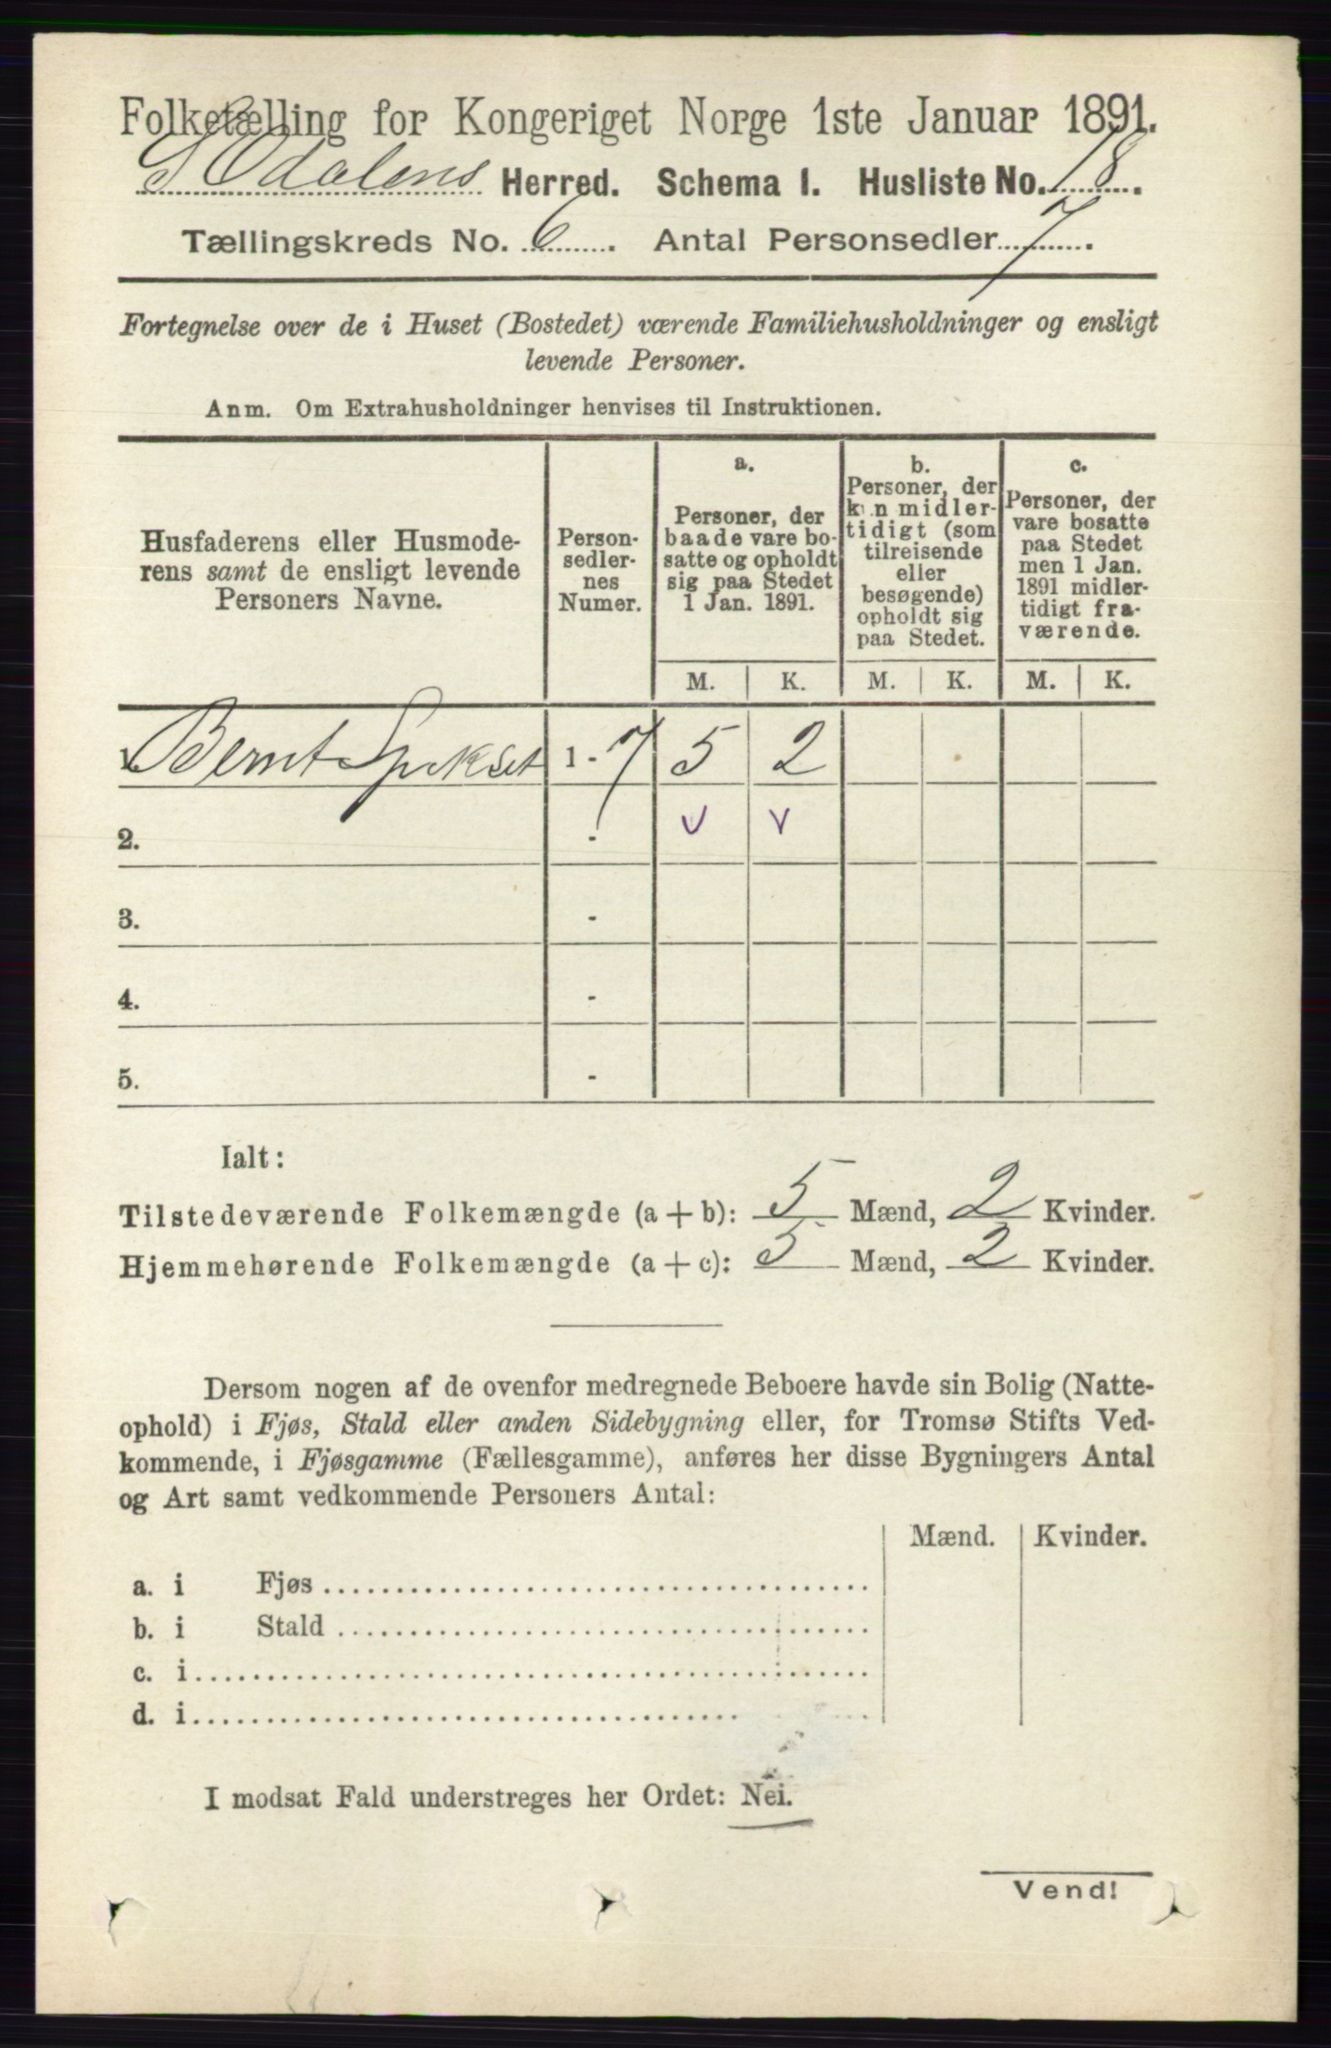 Folketælling for Kongeriget Norge 1ste Januar 1891.
S Odalens Herred. Schema I. Husliste No. 18.
Tællingskreds No. 6. Antal Personsedler 7.
Fortegnelse over de i Huset (Bostedet) værende Familiehusholdninger og ensligt
levende Personer.
Anm. Om Extrahusholdninger henvises til Instruktionen.
Husfaderens eller Husmode-
rens samt de ensligt levende
Personers Navne.
Person-
sedler-
nes
Numer.
a.
Personer, der
baade vare bo-
satte og opholdt
sig paa Stedet
1 Jan. 1891.
b.
Personer, der
kun midler-
tidigt (som
tilreisende
eller
besøgende)
opholdt sig
paa Stedet.
c.
Personer, der
vare bosatte
paa Stedet
men 1 Jan.
1891 midler-
tidigt fra-
værende.
M. K. M. K. M. K.
Bernt 1 - 7 5 2
2. - v v
3. -
4. -
5. -
Ialt:
Tilstedeværende Folkemængde (a + b): 5 Mænd, 2 Kvinder.
Hjemmehørende Folkemængde (a + c): 5 Mænd, 2 Kvinder.
Dersom nogen af de ovenfor medregnede Beboere havde sin Bolig (Natte-
ophold) i Fjøs, Stald eller anden Sidebygning eller, for Tromsø Stifts Ved-
kommende, i Fjøsgamme (Fællesgamme), anføres her disse Bygningers Antal
og Art samt vedkommende Personers Antal:
Mænd. Kvinder.
a. i Fjøs
b. i Stald
c. i
d. i
I modsat Fald understreges her Ordet: Nei.
Vend!